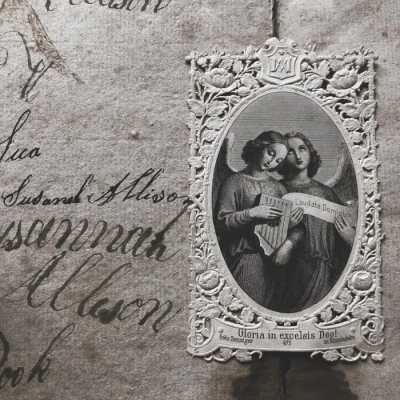 Allason
Sua
Susanah Allison
usannah
Allason
Book
Laudate Domi
Gloria in excelsis Deo!
Gebr. Benziger in Einsiedeln